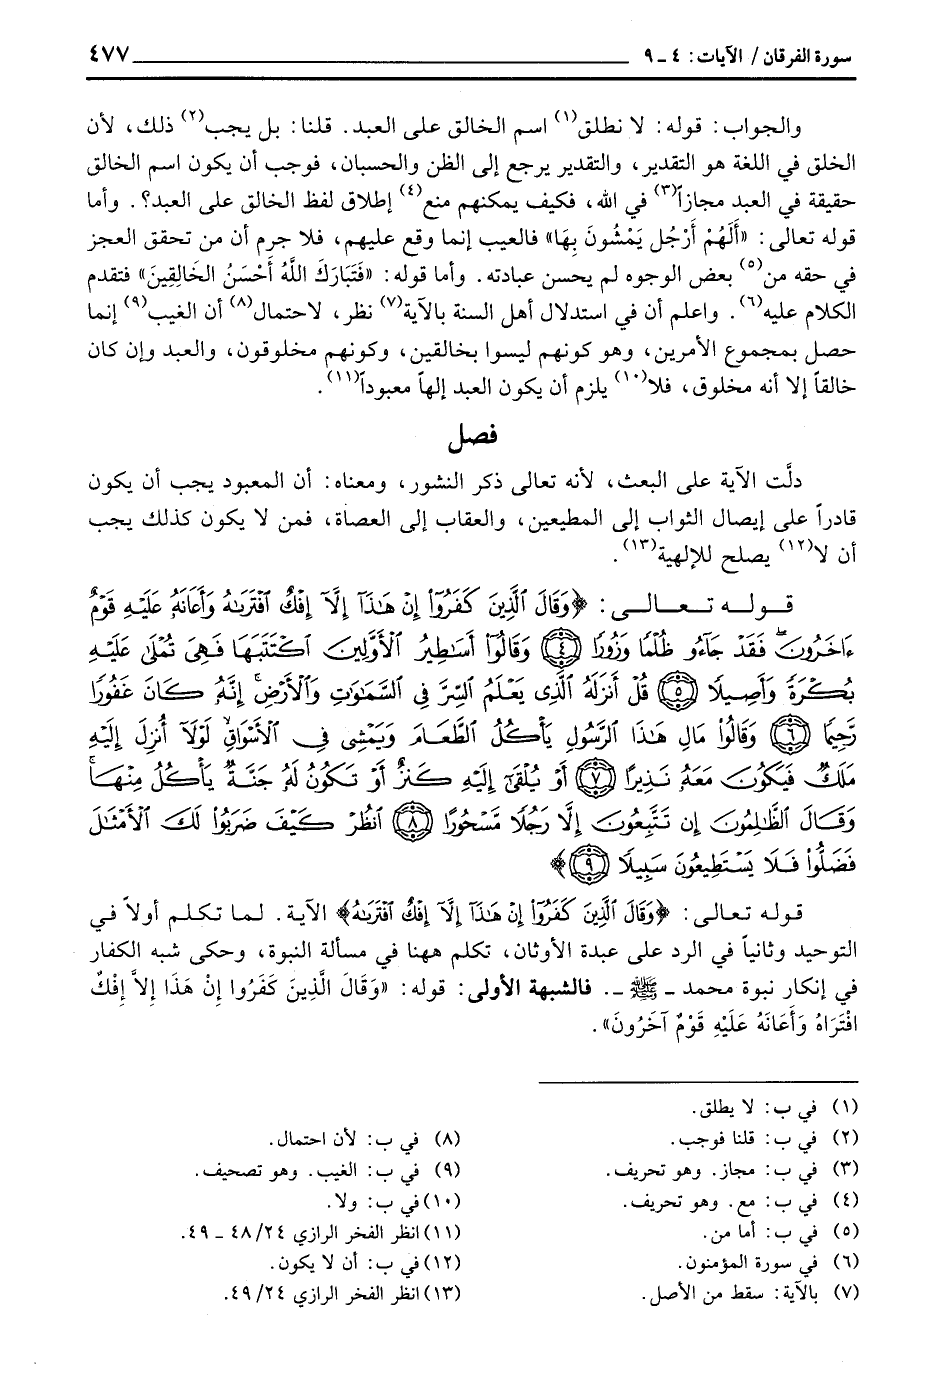 سورة الفرقان / الآيات: ٤ ـ ٩ ٤٧٧
والجواب: قوله: لا نطلق(١) اسم الخالق على العبد. قلنا: بل يجب(٢) ذلك، لأن
الخلق في اللغة هو التقدير، والتقدير يرجع إلى الظن والحسبان، فوجب أن يكون اسم الخالق
حقيقة في العبد مجازاً(٣) في الله، فكيف يمكنهم منع(٤) إطلاق لفظ الخالق على العبد؟. وأما
قوله تعالى: «أَلَهُمْ أَرْجُل يَمْشُونَ بِهَا» فالعيب إنما وقع عليهم، فلا جرم أن من تحقق العجز
في حقه من(٥) بعض الوجوه لم يحسن عبادته. وأما قوله: «فَتَبَارَكَ اللَّهُ أَحْسَنُ الخَالِقِينَ» فتقدم
الكلام عليه(٦). واعلم أن في استدلال أهل السنة بالآية(٧) نظر، لاحتمال(٨) أن الغيب(٩) إنما
حصل بمجموع الأمرين، وهو كونهم ليسوا بخالقين، وكونهم مخلوقون، والعبد وإن كان
خالقاً إلا أنه مخلوق، فلا(١٠) يلزم أن يكون العبد إلهاً معبوداً(١١).
فصل
دلَّت الآية على البعث، لأنه تعالى ذكر النشور، ومعناه: أن المعبود يجب أن يكون
قادراً على إيصال الثواب إلى المطيعين، والعقاب إلى العصاة، فمن لا يكون كذلك يجب
أن لا(١٢) يصلح للإلهية(١٣).
قوله تعالى: ﴿وَقَالَ ٱلَّذِينَ كَفَرُوٓا۟ إِنْ هَٰذَآ إِلَّآ إِفْكٌ ٱفْتَرَىٰهُ وَأَعَانَهُۥ عَلَيْهِ قَوْمٌ
ءَاخَرُونَۖ فَقَدْ جَآءُو ظُلْمًا وَزُورًا ﴿٤﴾ وَقَالُوٓا۟ أَسَٰطِيرُ ٱلْأَوَّلِينَ ٱكْتَتَبَهَا فَهِىَ تُمْلَىٰ عَلَيْهِ
بُكْرَةً وَأَصِيلًا ﴿٥﴾ قُلْ أَنزَلَهُ ٱلَّذِى يَعْلَمُ ٱلسِّرَّ فِى ٱلسَّمَٰوَٰتِ وَٱلْأَرْضِۚ إِنَّهُۥ كَانَ غَفُورًا
رَّحِيمًا ﴿٦﴾ وَقَالُوا۟ مَالِ هَٰذَا ٱلرَّسُولِ يَأْكُلُ ٱلطَّعَامَ وَيَمْشِى فِى ٱلْأَسْوَاقِۙ لَوْلَآ أُنزِلَ إِلَيْهِ
مَلَكٌ فَيَكُونَ مَعَهُۥ نَذِيرًا ﴿٧﴾ أَوْ يُلْقَىٰٓ إِلَيْهِ كَنزٌ أَوْ تَكُونُ لَهُۥ جَنَّةٌ يَأْكُلُ مِنْهَاۚ
وَقَالَ ٱلظَّٰلِمُونَ إِن تَتَّبِعُونَ إِلَّا رَجُلًا مَّسْحُورًا ﴿٨﴾ ٱنظُرْ كَيْفَ ضَرَبُوا۟ لَكَ ٱلْأَمْثَٰلَ
فَضَلُّوا۟ فَلَا يَسْتَطِيعُونَ سَبِيلًا ﴿٩﴾﴾
قوله تعالى: ﴿وَقَالَ ٱلَّذِينَ كَفَرُوٓا۟ إِنْ هَٰذَآ إِلَّآ إِفْكٌ ٱفْتَرَىٰهُ﴾ الآية. لما تكلم أولاً في
التوحيد وثانياً في الرد على عبدة الأوثان، تكلم ههنا في مسألة النبوة، وحكى شبه الكفار
في إنكار نبوة محمد ـ ﷺ ـ. فالشبهة الأولى: قوله: «وَقَالَ الَّذِينَ كَفَرُوا إِنْ هَذَا إِلاَّ إِفْكٌ
افْتَرَاهُ وَأَعَانَهُ عَلَيْهِ قَوْمٌ آخَرُونَ».
(١) في ب: لا يطلق.
(٢) في ب: قلنا فوجب.
(٣) في ب: مجاز. وهو تحريف.
(٤) في ب: مع. وهو تحريف.
(٥) في ب: أما من.
(٦) في سورة المؤمنون.
(٧) بالآية: سقط من الأصل.
(٨) في ب: لأن احتمال.
(٩) في ب: الغيب. وهو تصحيف.
(١٠) في ب: ولا.
(١١) انظر الفخر الرازي ٢٤/٤٨ ـ ٤٩.
(١٢) في ب: أن لا يكون.
(١٣) انظر الفخر الرازي ٢٤/٤٩.